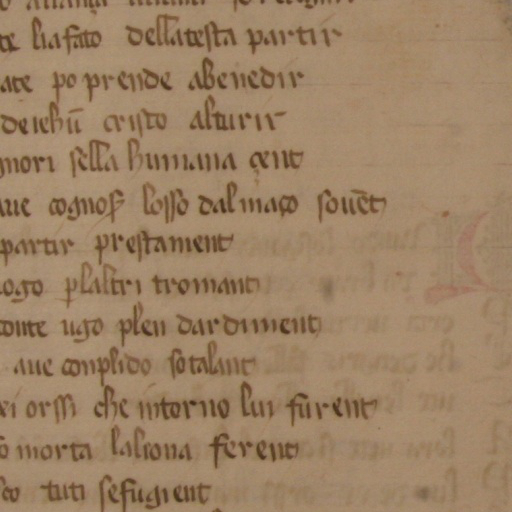 te lia fato della testa partir
ate po prende abenedir
de iehū cristo alturir
gnori sella humana çent
aue cognos losso dal maço souēt
partir prestament
logo p laltri tromant
conte ugo plen dardiment
aue conplido so talant
ei orssi che intorno lui furent
o morta laliona ferent
sto tuti se fugient